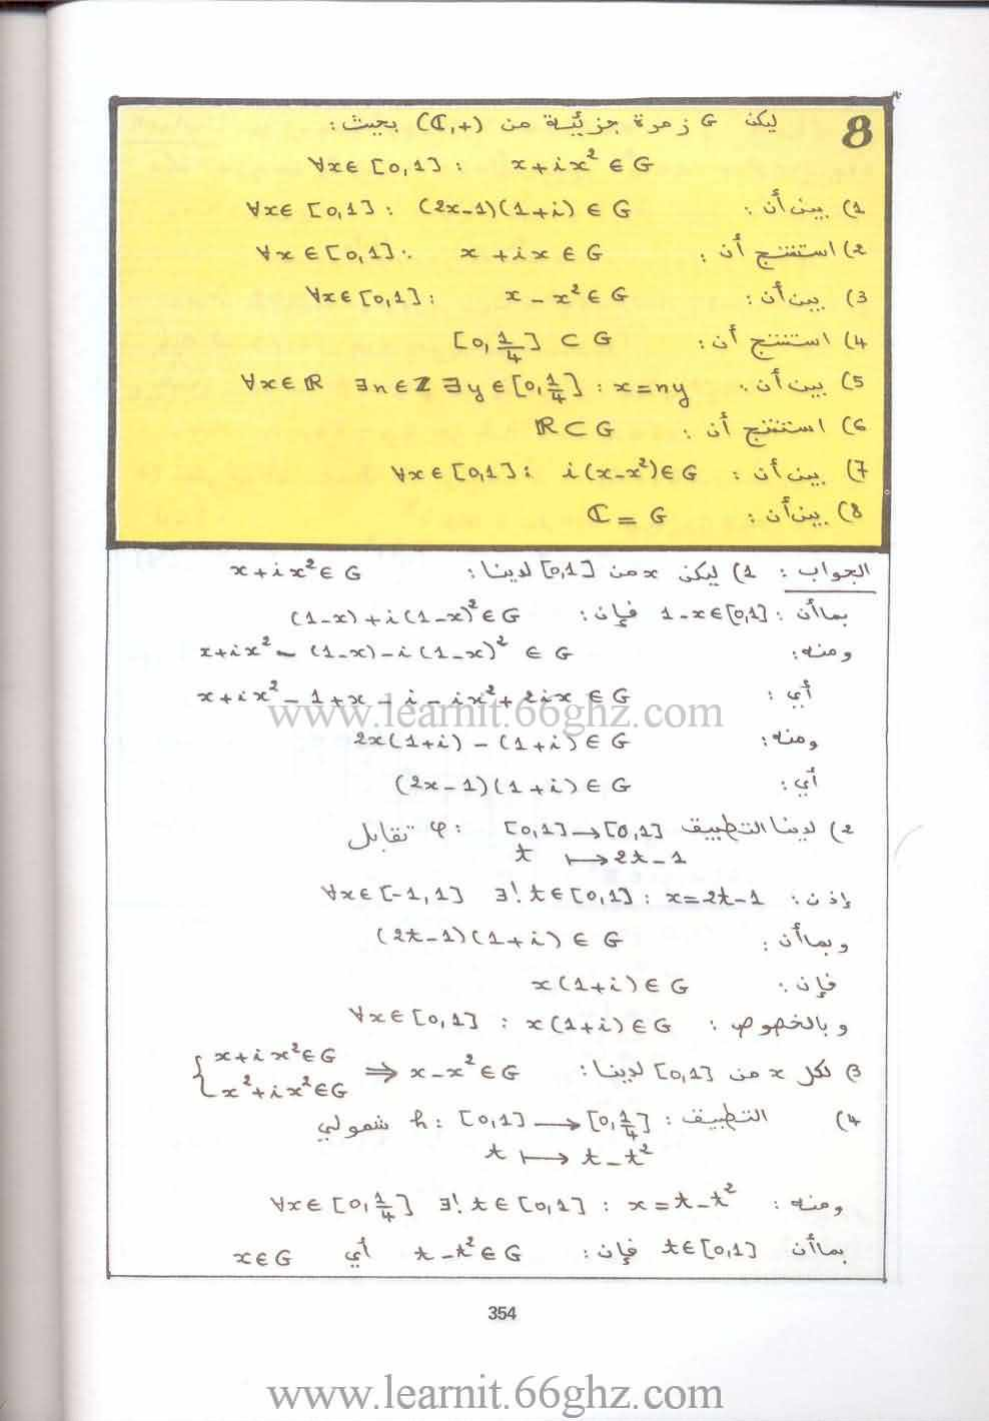 8 ليكن G زمرة جزئية من (ℂ,+) بحيث :
∀x∈[0,1] : x+ix² ∈ G
1) بين أن : ∀x∈ [0,1] : (2x-1)(1+i) ∈ G
2) استنتج أن : ∀x∈[0,1] : x+ix ∈ G
3) بين أن : ∀x∈[0,1] : x-x² ∈ G
4) استنتج أن : [0,1/4] ⊂ G
5) بين أن : ∀x∈ℝ ∃n∈ℤ ∃y∈[0,1/4] : x=ny
6) استنتج أن : ℝ⊂G
7) بين أن : ∀x∈[0,1] : i(x-x²)∈G
8) بين أن : ℂ = G
الجواب : 1) ليكن x من [0,1] لدينا : x+ix²∈G
بماأن : 1-x∈[0,1] فإن : (1-x)+i(1-x)²∈G
ومنه : x+ix² - (1-x)-i(1-x)² ∈ G
أي : x+ix²-1+x-i-ix²+2ix ∈ G
www.learnit.66ghz.com
ومنه : 2x(1+i)-(1+i)∈G
أي : (2x-1)(1+i)∈G
2) لدينا التطبيق φ : [0,1]→[0,1] تقابل
t ↦ 2t-1
إذن : ∀x∈[-1,1] ∃! t∈[0,1] : x=2t-1
وبماأن : (2t-1)(1+i) ∈ G
فإن : x(1+i)∈G
وبالخصوص : ∀x∈[0,1] : x(1+i)∈G
3) لكل x من [0,1] لدينا : { x+ix²∈G
x²+ix²∈G ⇒ x-x²∈G
4) التطبيق : h : [0,1]→[0,1/4] شمولي
t ↦ t-t²
ومنه : ∀x∈[0,1/4] ∃! t∈[0,1] : x=t-t²
بماأن t∈[0,1] فإن : t-t²∈G أي x∈G
354
www.learnit.66ghz.com